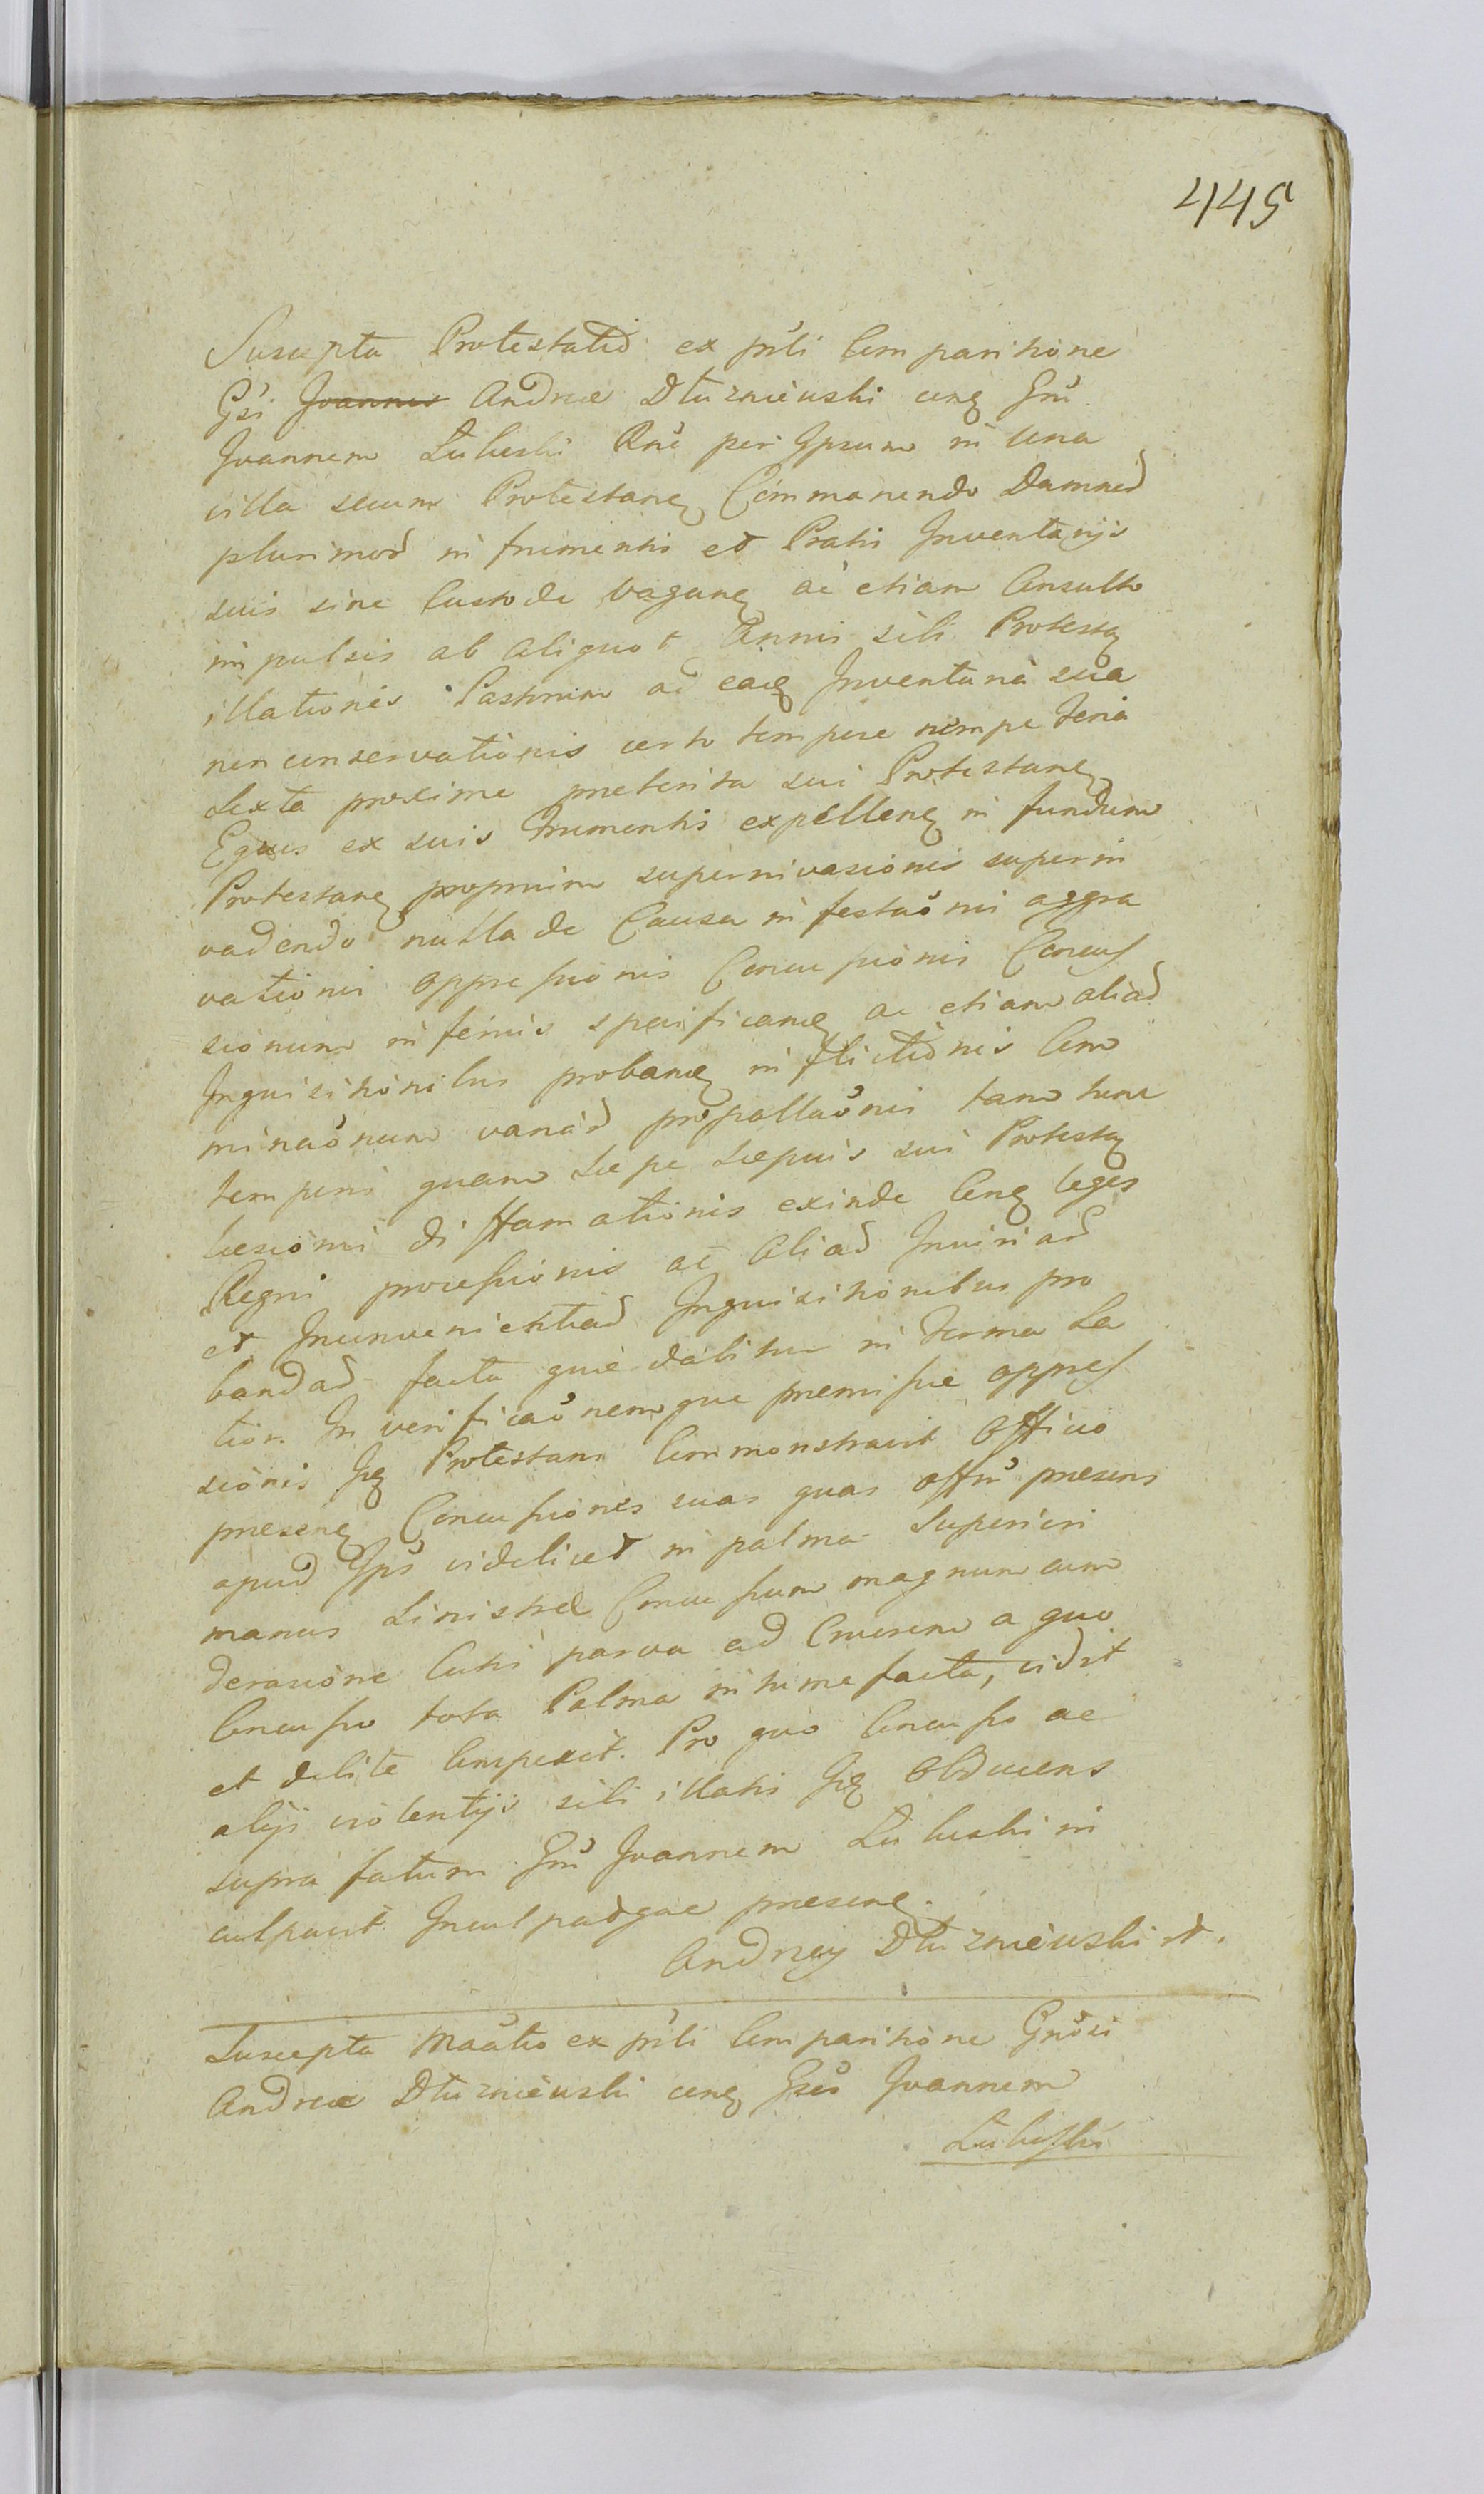 445
Suscepta Protestatio ex prśti Comparitione
Gsi Joannis Andreæ Dłuzniewski con Gnū
Joannem Lubuski Rne per Ipsum in una
villa secum Protestan Commanendo Damnod
plurimod in frumentis et Pratis Inventarijs
suis sine Custode vagan ac etiam Consulto
impulsis ab aliquot Annis sibi Protestan
illationis Pastorum ad eaq Inventaria sua
non conservationis certo tempore nempe Feria
Sexta proxime preterita sui Protestan
Equos ex suis Frumentis expellen in fundum
Protestan proprium superinvasionis superin
vadendo nulla de Causa infestaōnis aggra
vationis oppressionis Concussionis Concus
sionum inferius specifican ac etiam aliad
Inquisitionibus proban inflictionis Com
minaōnum variad propallaōnis tam tunc
temporis quam sæpe sæpius sui Protestan
læsionis diffamationis exinde Con leges
Regni processionis ac Aliad Iniuriad
et Inconvenientiad Inquisitionibus pro
bandad facta quæ dabitur in Forma La
tior. In verificaōnemque premissæ oppres
sionis Iq Protestans Commonstravit Officio
presen Concussiones suas quas offm presens
apud Ips videlicet in palma Superiori
manus Sinistræ Concussum magnum cum
derasione Cutis parva ad Cruorem a quo
Concusso tota Palma intumefacta, vidit
et debite Conspexit. Pro quo Concusso ac
alijs violentijs sibi illatis Iq Obducens
supra fatum Gnū Joannem Lubuski in
culpavit Inculpadque presen.
Andrzey Dłuzniewski
Suscepta Maātio ex prśti Comparitione Gnōsi
Andreæ Dłuzniewski con Gsū Joannem
Lubuski